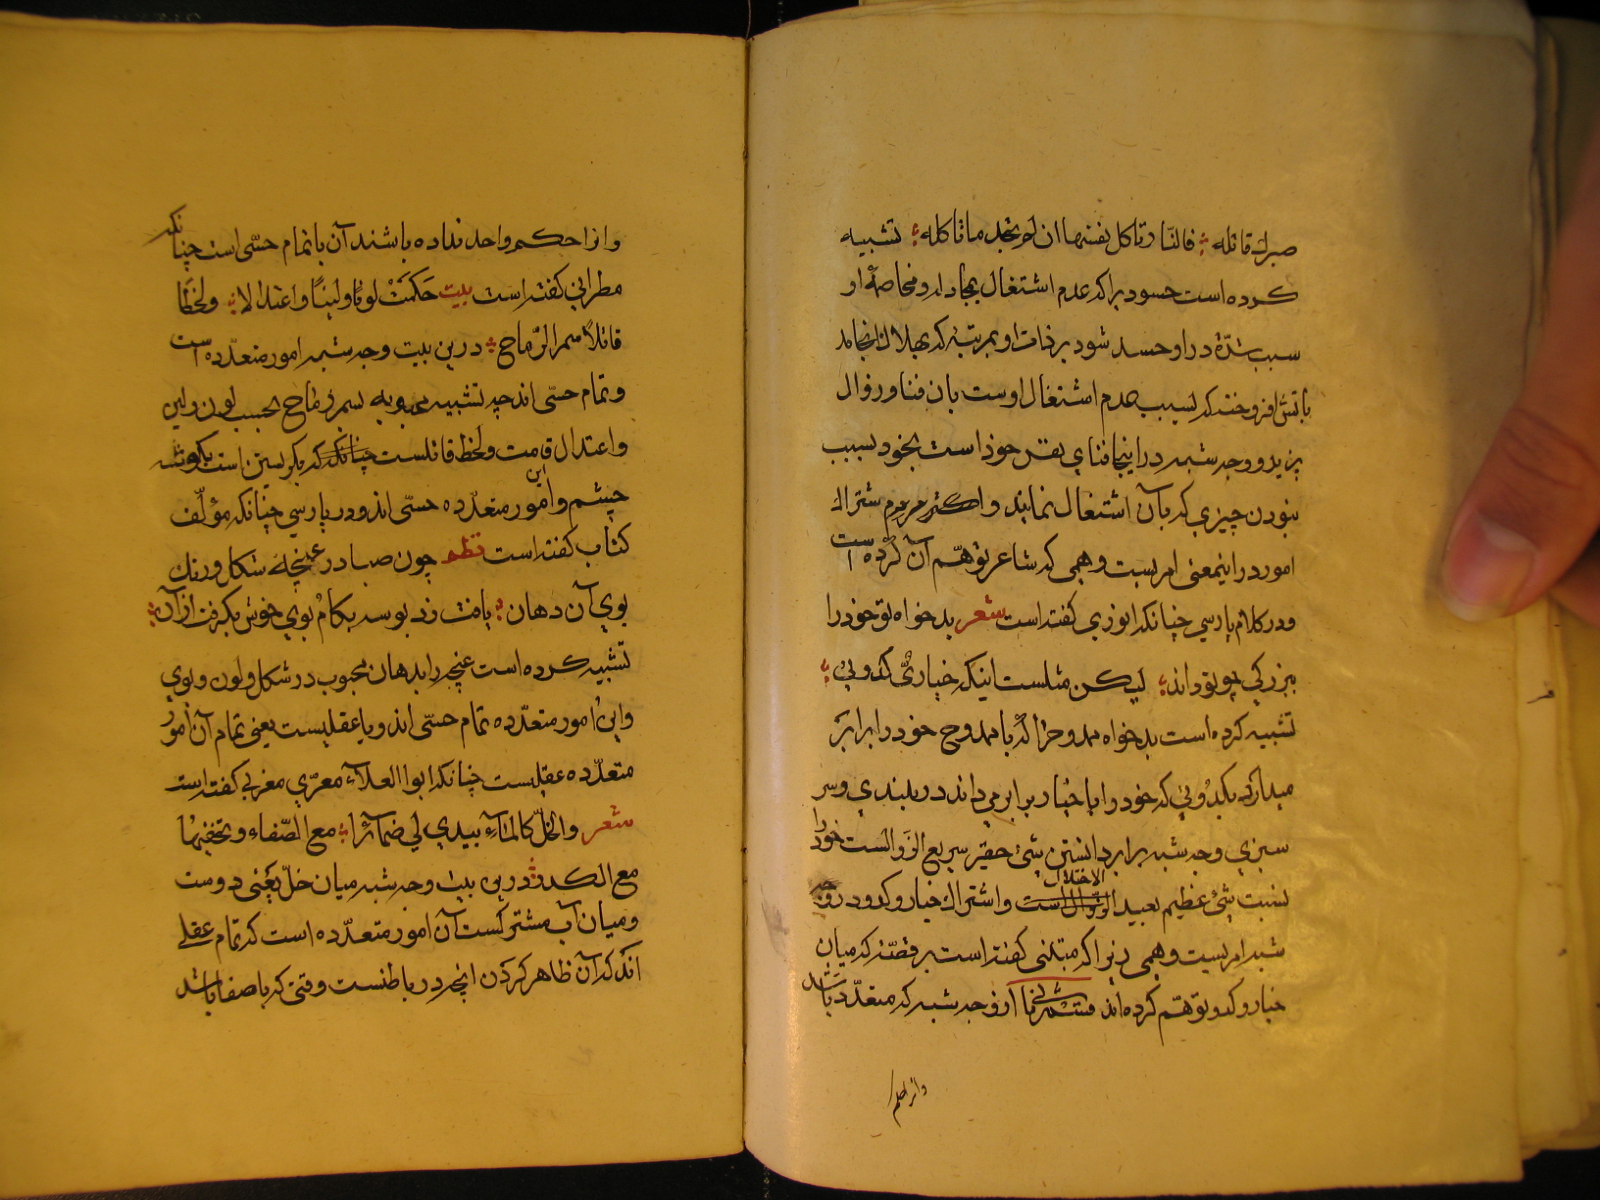 صبرك قاتله ؛ فالنّار تاكل نفسها ان لم تجد ما تاكله ؛ تشبیه
کرده است حسود براکه عدم اشتغال بجادله و مخاصمهٔ او
سبب شدّة در او حسد شود بر ذات او بمرتبهٔ که بهلاك انجامد
باتش افروخته که بسبب عدم اشتغال اوست بان فنا و زوال
پزیرد و وجه شبه در اینجا فنای نفس خوذ است بخود بسبب
نبودن چیزي که بآن اشتغال نماید و اکثر شتراك
امور در اینمعنی امریست وهمی که شاعر توهّم آن کرده است
و در کلام پارسي چنانکه انوري کفته است شعر بدخواه تو خود را
ببزرکي چو تو داند ؛ لیکن مثلست اینکه خیاری و کدویی ؛
تشبیه کرده است بدخواه ممدوح را که با ممدوح خود را برابر
میدارد بکدویي که خود را با خیار برابر می داند در بلندي و سر
سبزي وجه شبه برابر دانستن شئ حقیر سریع الزوالست خود را
نسبت بشئ عظیم بعید الزّوال است الاختلال و اشتراك خیار و کدو در وجه
شبه امریست وهمي زیرا که مبتنی کفته است بر قصّهٔ که میان
خیار و کدو توهّم کرده اند قسم ثانی از وجه شبه که متعدّد باشد
و از احکم
و از احکم واحد نداده باشند آن یا تمام حسّی است چنانکه
مطراني کفته است بیت حَكَمَتْ لونًا ولینًا واعتدالا ؛ ولحظًا
قاتلًا سمر الرّماح ؛ درین بیت وجه شبه امور متعدّده است
و تمام حسّی اند چه تشبیه محبوبه بسمر رماح بحسب لون و لین
و اعتدال قامت و لحظ قاتلست چنانکه که نکریستن است بکوشه
چشم و این امور متعدّده حسّی اند و در پارسي چنانکه مؤلّف
کتاب کفته است نظم چون صبا در غنچهٔ شکل و رنك
بوي آن دهان ؛ یافت زد بوسه بکام بوي خوش بکرفت از آن ؛
تشبیه کرده است غنچه را بدهان محبوب در شکل و لون و بوي
و این امور متعدّده تمام حسّی اند و یا عقلیست یعنی تمام آن امور
متعدّده عقلیست چنانکه ابوا العلاء معرّي مغربي کفته است
شعر والخلّ كالماء يبدي لي ضمائره ؛ مع الصّفاء ويخفيها
مع الكدر ؛ درین بیت وجه شبه میان خلّ یَعنی دوست
و میان آب مشترکست آن امور متعدّده است که تمام عقلي
اند که آن ظاهر کرذن انچه در باطنست وقتی که باصفا باشد